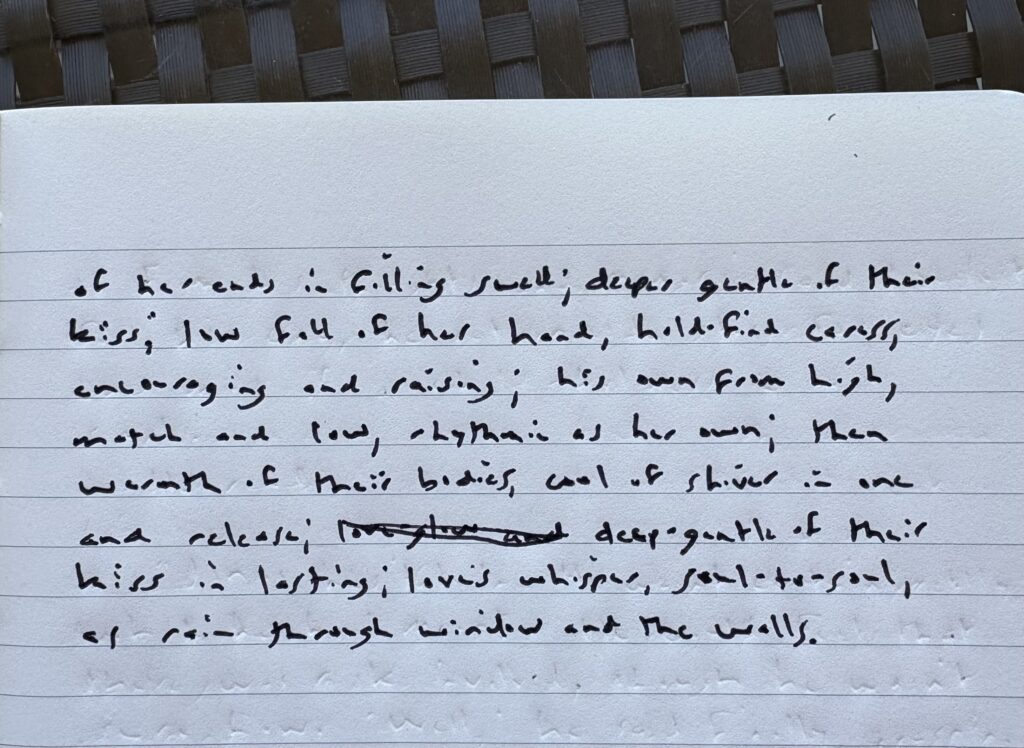 of her ends in filling swell; deeper gentle of their
kiss; low fall of her hand, hold-find caress,
encouraging and raising; his own from high,
match and low, rhythmic as her own; then
warmth of their bodies, cool of shiver in one
and release; deep-gentle of their
kiss in lasting; love's whisper, soul-to-soul,
as rain through window and the walls.